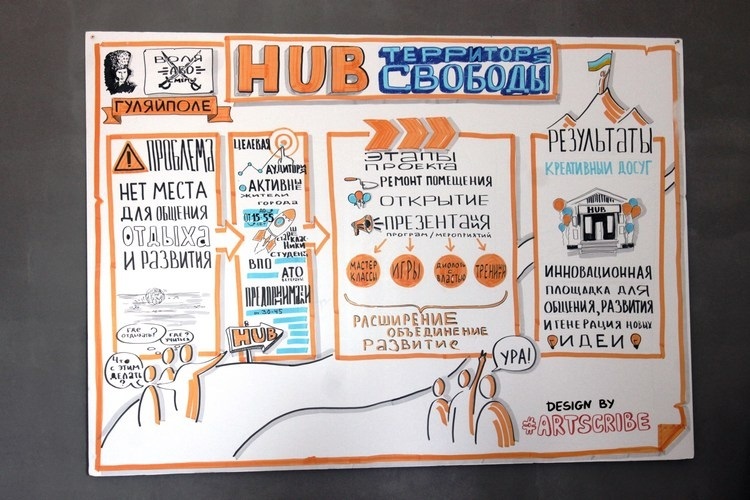 ВОЛЯ
АБО
СМЕРТЬ
ГУЛЯЙПОЛЕ
HUB ТЕРРИТОРИЯ
СВОБОДЫ
ПРОБЛЕМА
НЕТ МЕСТА
ДЛЯ ОБЩЕНИЯ
ОТДЫХА
И РАЗВИТИЯ
ГДЕ
ОТДЫХАТЬ?
ГДЕ
УЧИТЬСЯ
ЧТО
С ЭТИМ
ДЕЛАТЬ
?
ЦЕЛЕВАЯ
АУДИТОРИЯ
АКТИВНЫЕ
ЖИТЕЛИ
ГОРОДА
ОТ 15-55
СТАРШЕКЛАССНИКИ
СТУДЕНТЫ
ВПО
АТО
ПРЕДПРИНИМАТЕЛИ
30-45
HUB
ЭТАПЫ
ПРОЕКТА
РЕМОНТ ПОМЕЩЕНИЯ
ОТКРЫТИЕ
ПРЕЗЕНТАЦИЯ
ПРОГРАМ/МЕРОПРИЯТИЙ
МАСТЕР
КЛАССЫ
ИГРЫ
ДИАЛОГИ
С
ВЛАСТЬЮ
ТРЕНИНГИ
РАСШИРЕНИЕ
ОБЪЕДИНЕНИЕ
РАЗВИТИЕ
УРА!
РЕЗУЛЬТАТЫ
КРЕАТИВНЫЙ ДОСУГ
HUB
ИННОВАЦИОННАЯ
ПЛОЩАДКА ДЛЯ
ОБЩЕНИЯ, РАЗВИТИЯ
И ГЕНЕРАЦИЯ НОВЫХ
ИДЕИ
DESIGN BY
#ARTSCRIBE